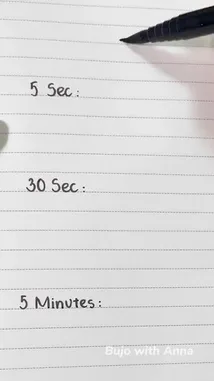 5 Sec:
30 Sec:
5 Minutes:
Bujo with Anna